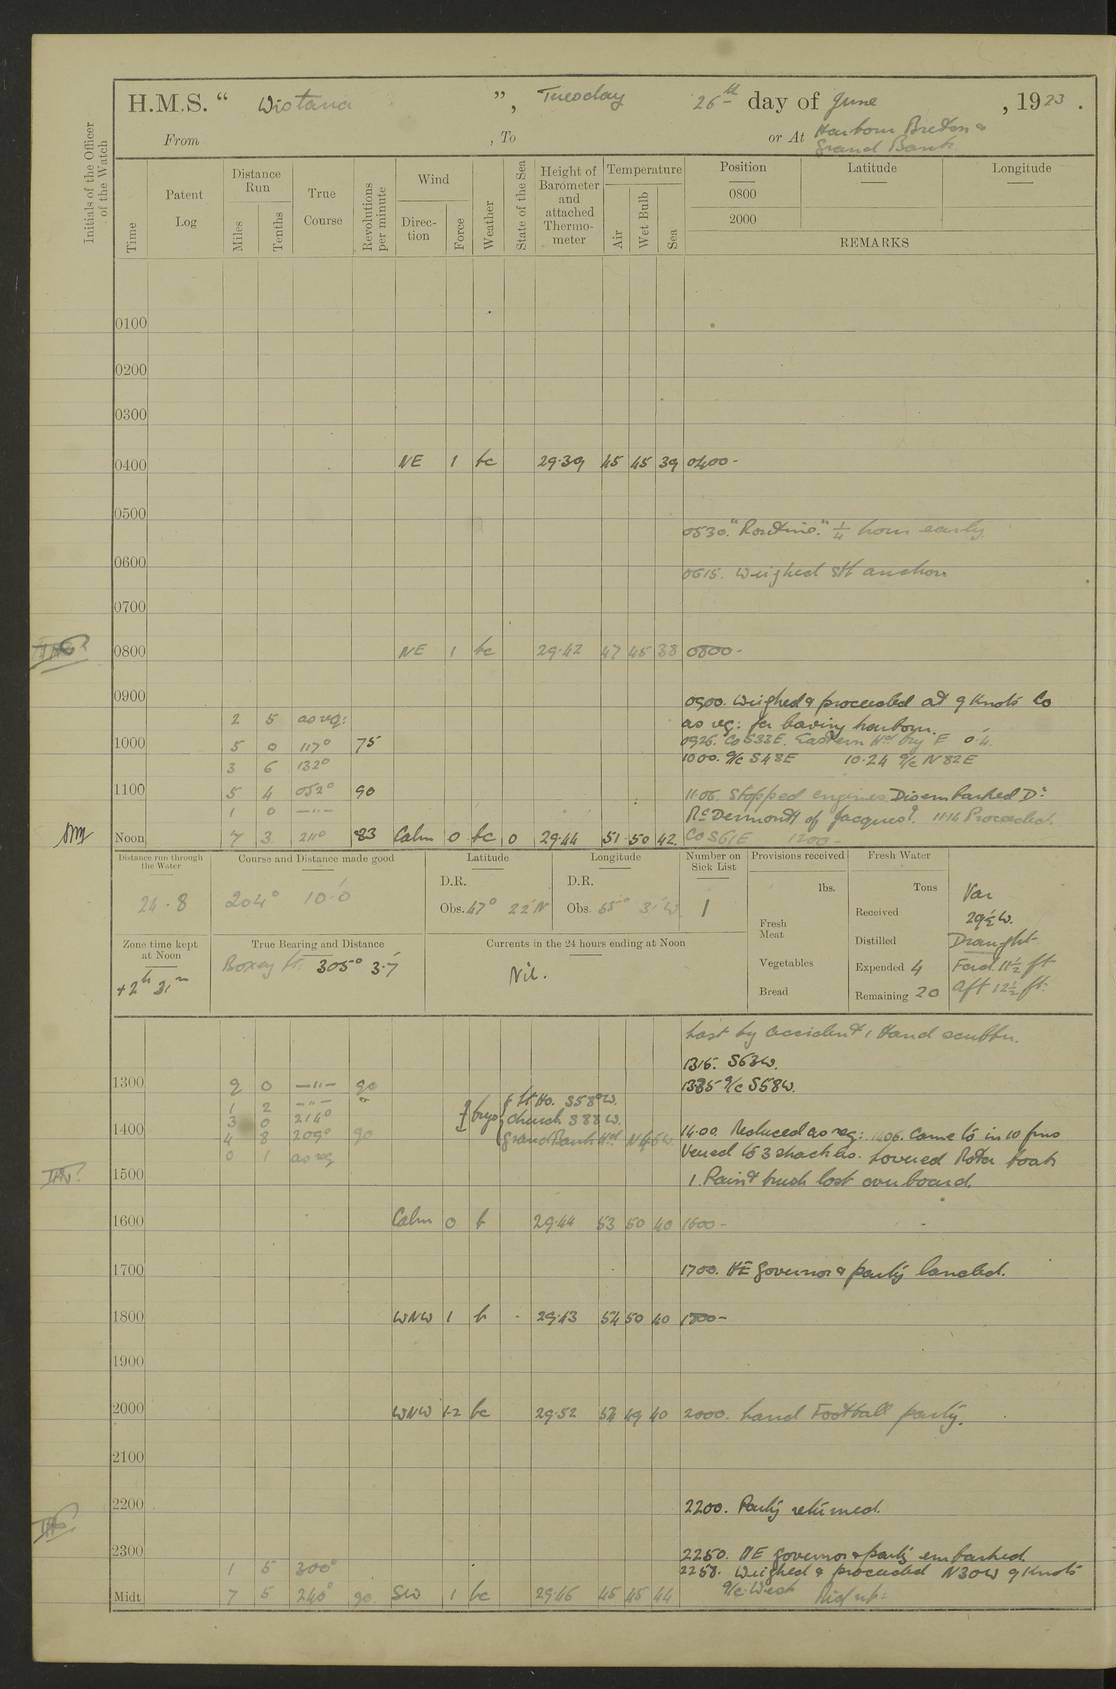 H.M.S. “ Wistaria ”, Tuesday 26th day of June , 1923 .
From , To or At Harbour Breton &
Grand Bank
Initials of the Officer of the Watch
Time
Patent Log
Distance Run
Miles
Tenths
True Course
Revolutions per minute
Wind
Direc-tion
Force
Weather
State of the Sea
Height of Barometer and attached Thermo-meter
Temperature
Air
Wet Bulb
Sea
Position Latitude Longitude
0800
2000
REMARKS
0100
0200
0300
0400 NE 1 bc 29.39 45 45 39 0400-
0500
0530. "Routine." ¼ hour early.
0600
0615. Weighed anchor
0700
0800 NE 1 bc 29.42 47 45 38 0800-
0900 0900. Weighed & proceeded at 9 Knots Co
2 5 as req: as req: for leaving harbour.
1000 5 0 117° 75 0926. Co S33E. Eastern Hd brg E 0.4.
3 6 132° 1000. a/c S48E 10.24 a/c N82E
1100 5 4 052° 90 11.06. Stopped engines. Disembarked Dr
1 0 —"— McDermott of Jacques. 11.14 Proceeded.
Noon 7 3 211° 83 Calm 0 bc 0 29.44 51 50 42. Co S61E 1200-
Distance run through the Water
24.8
Course and Distance made good
204° 10.0
Latitude
D.R.
Obs. 47° 22 N
Longitude
D.R.
Obs. 55° W
Number on Sick List
1
Provisions received
lbs.
Fresh Meat
Vegetables
Bread
Fresh Water
Tons
Received
Distilled
Expended 4
Remaining 20
Var
29½ W.
Draught
Ford. 11½ ft
Aft 12½ ft.
Zone time kept at Noon
+2h 31m
True Bearing and Distance
Boxey Pt. 305° 3.7
Currents in the 24 hours ending at Noon
Nil.
Lost by accident 1 Hand
1315. S63W.
1300 9 0 —"— 90 1335 a/c S58W.
1 2 —"— "
3 0 214° brgs Lt Ho. S58°W.
church S88W.
1400 4 8 209° 90 Grand Bank Hd 14.00. Reduced as req: 1406. Came to in 10 fms
0 1 as req Veered to 3 shackles. Lowered Motor boat
1500 1. Paint brush lost overboard.
1600 Calm 0 b 29.44 53 50 40 1600-
1700 1700. HE Governor & party landed.
1800 WNW 1 b 29.43 54 50 40 1800-
1900
2000 WNW 1-2 bc 29.52 54 49 40 2000. Land Football party.
2100
2200 2200. Party returned.
2300 2250. HE Governor & party embarked.
1 5 300° 2258. Weighed & proceeded N30W 9 Knots
Midt 7 5 240° 90 SW 1 bc 29.46 45 45 44 a/c West